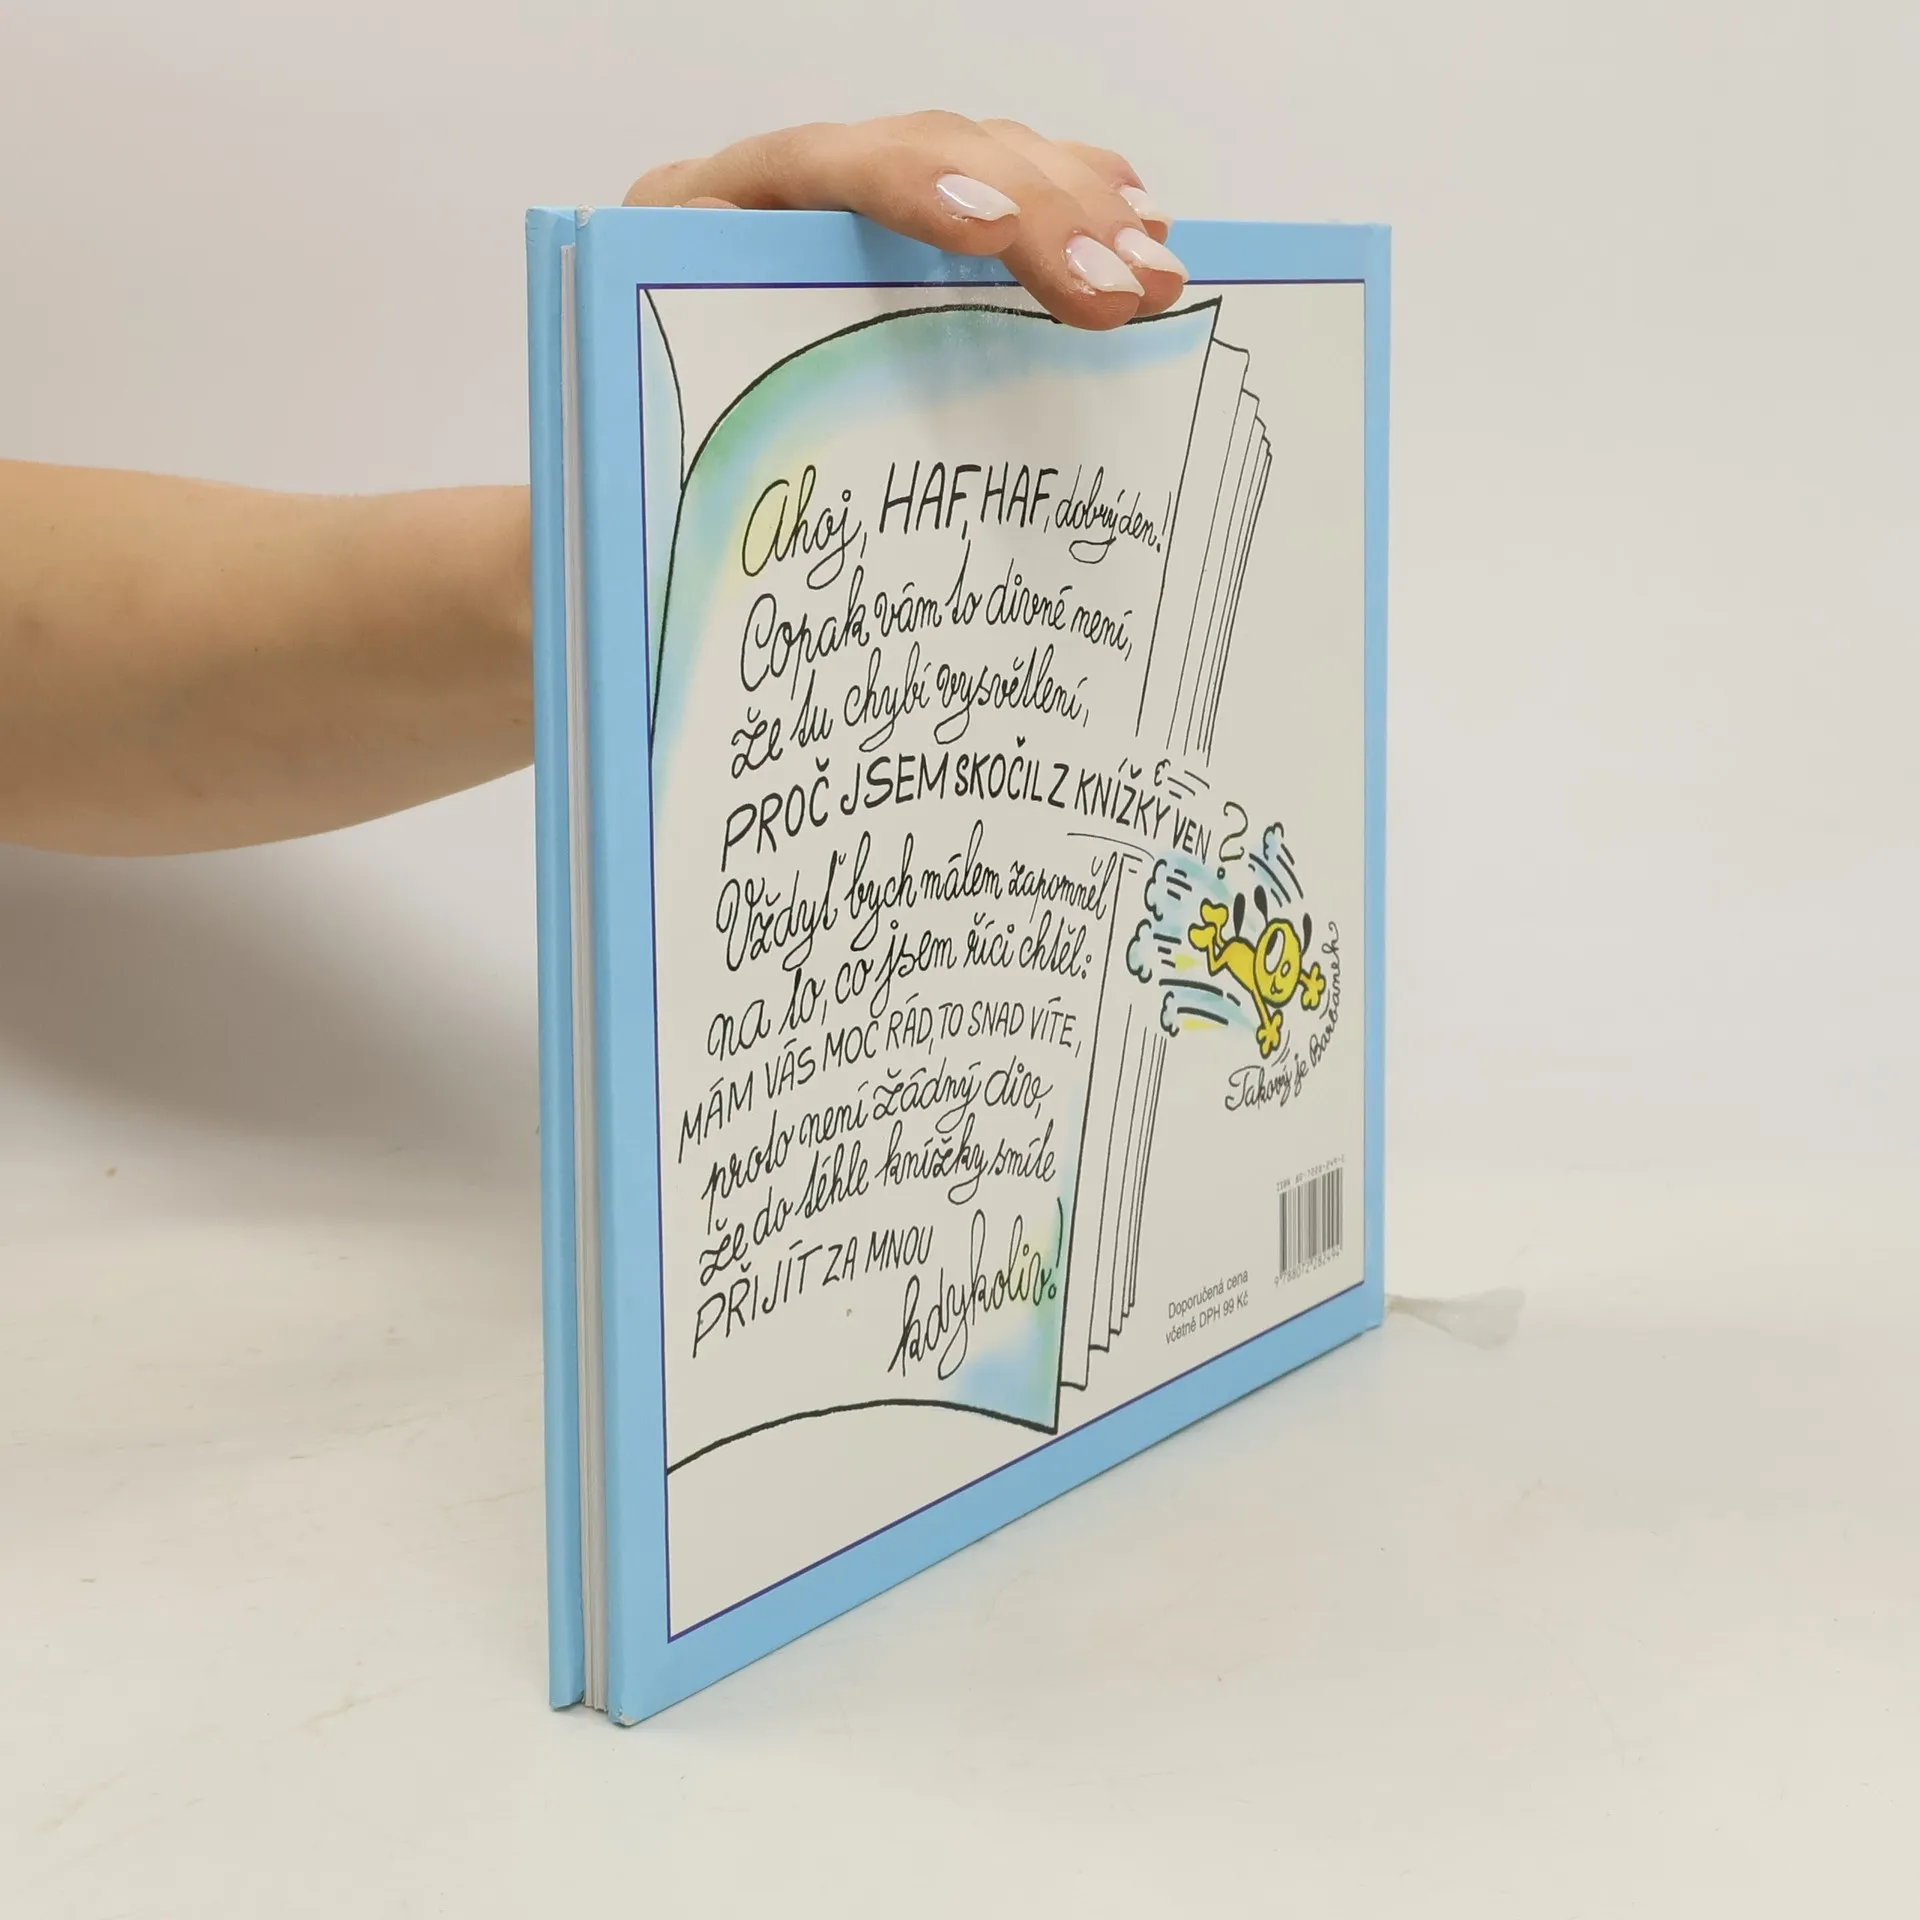 Ahoj, HAF, HAF, dobrý den!
Copak vám to divné není,
že tu chybí vysvětlení,
PROČ JSEM SKOČIL Z KNÍŽKY VEN?
Vždyť bych málem zapomněl
na to, co jsem říci chtěl:
MÁM VÁS MOC RÁD, TO SNAD VÍTE,
proto není žádný div,
že do téhle knížky smíte
PŘIJÍT ZA MNOU
kdykoliv!
Takový je Barbánek
ISBN 80-7228-249-
9 788072 282494
Doporučená cena
včetně DPH 99 Kč